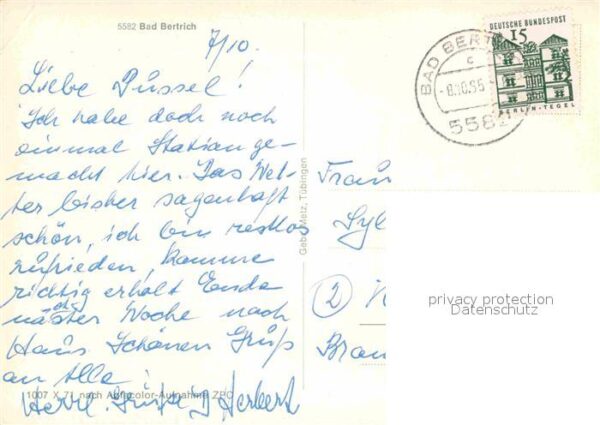 5582 Bad Bertrich
7/10.
Liebe Düssel!
Ich habe doch noch
einmal Station ge-
macht hier. Das Wet-
ter bisher sagenhaft
schön, ich bin restlos
zufrieden, komme
richtig erholt Ende
nächster Woche nach
Haus Schönen Gruß
an Alle.
Herzl. Grüße Herbert
1007 X 71 nach Agfacolor-Aufnahme ZPC
Gebr. Metz, Tübingen
BAD BERT
c
-8.10.65
5582
DEUTSCHE BUNDESPOST
15
BERLIN-TEGEL
Frau
Syl
2
Brau
privacy protection
Datenschutz